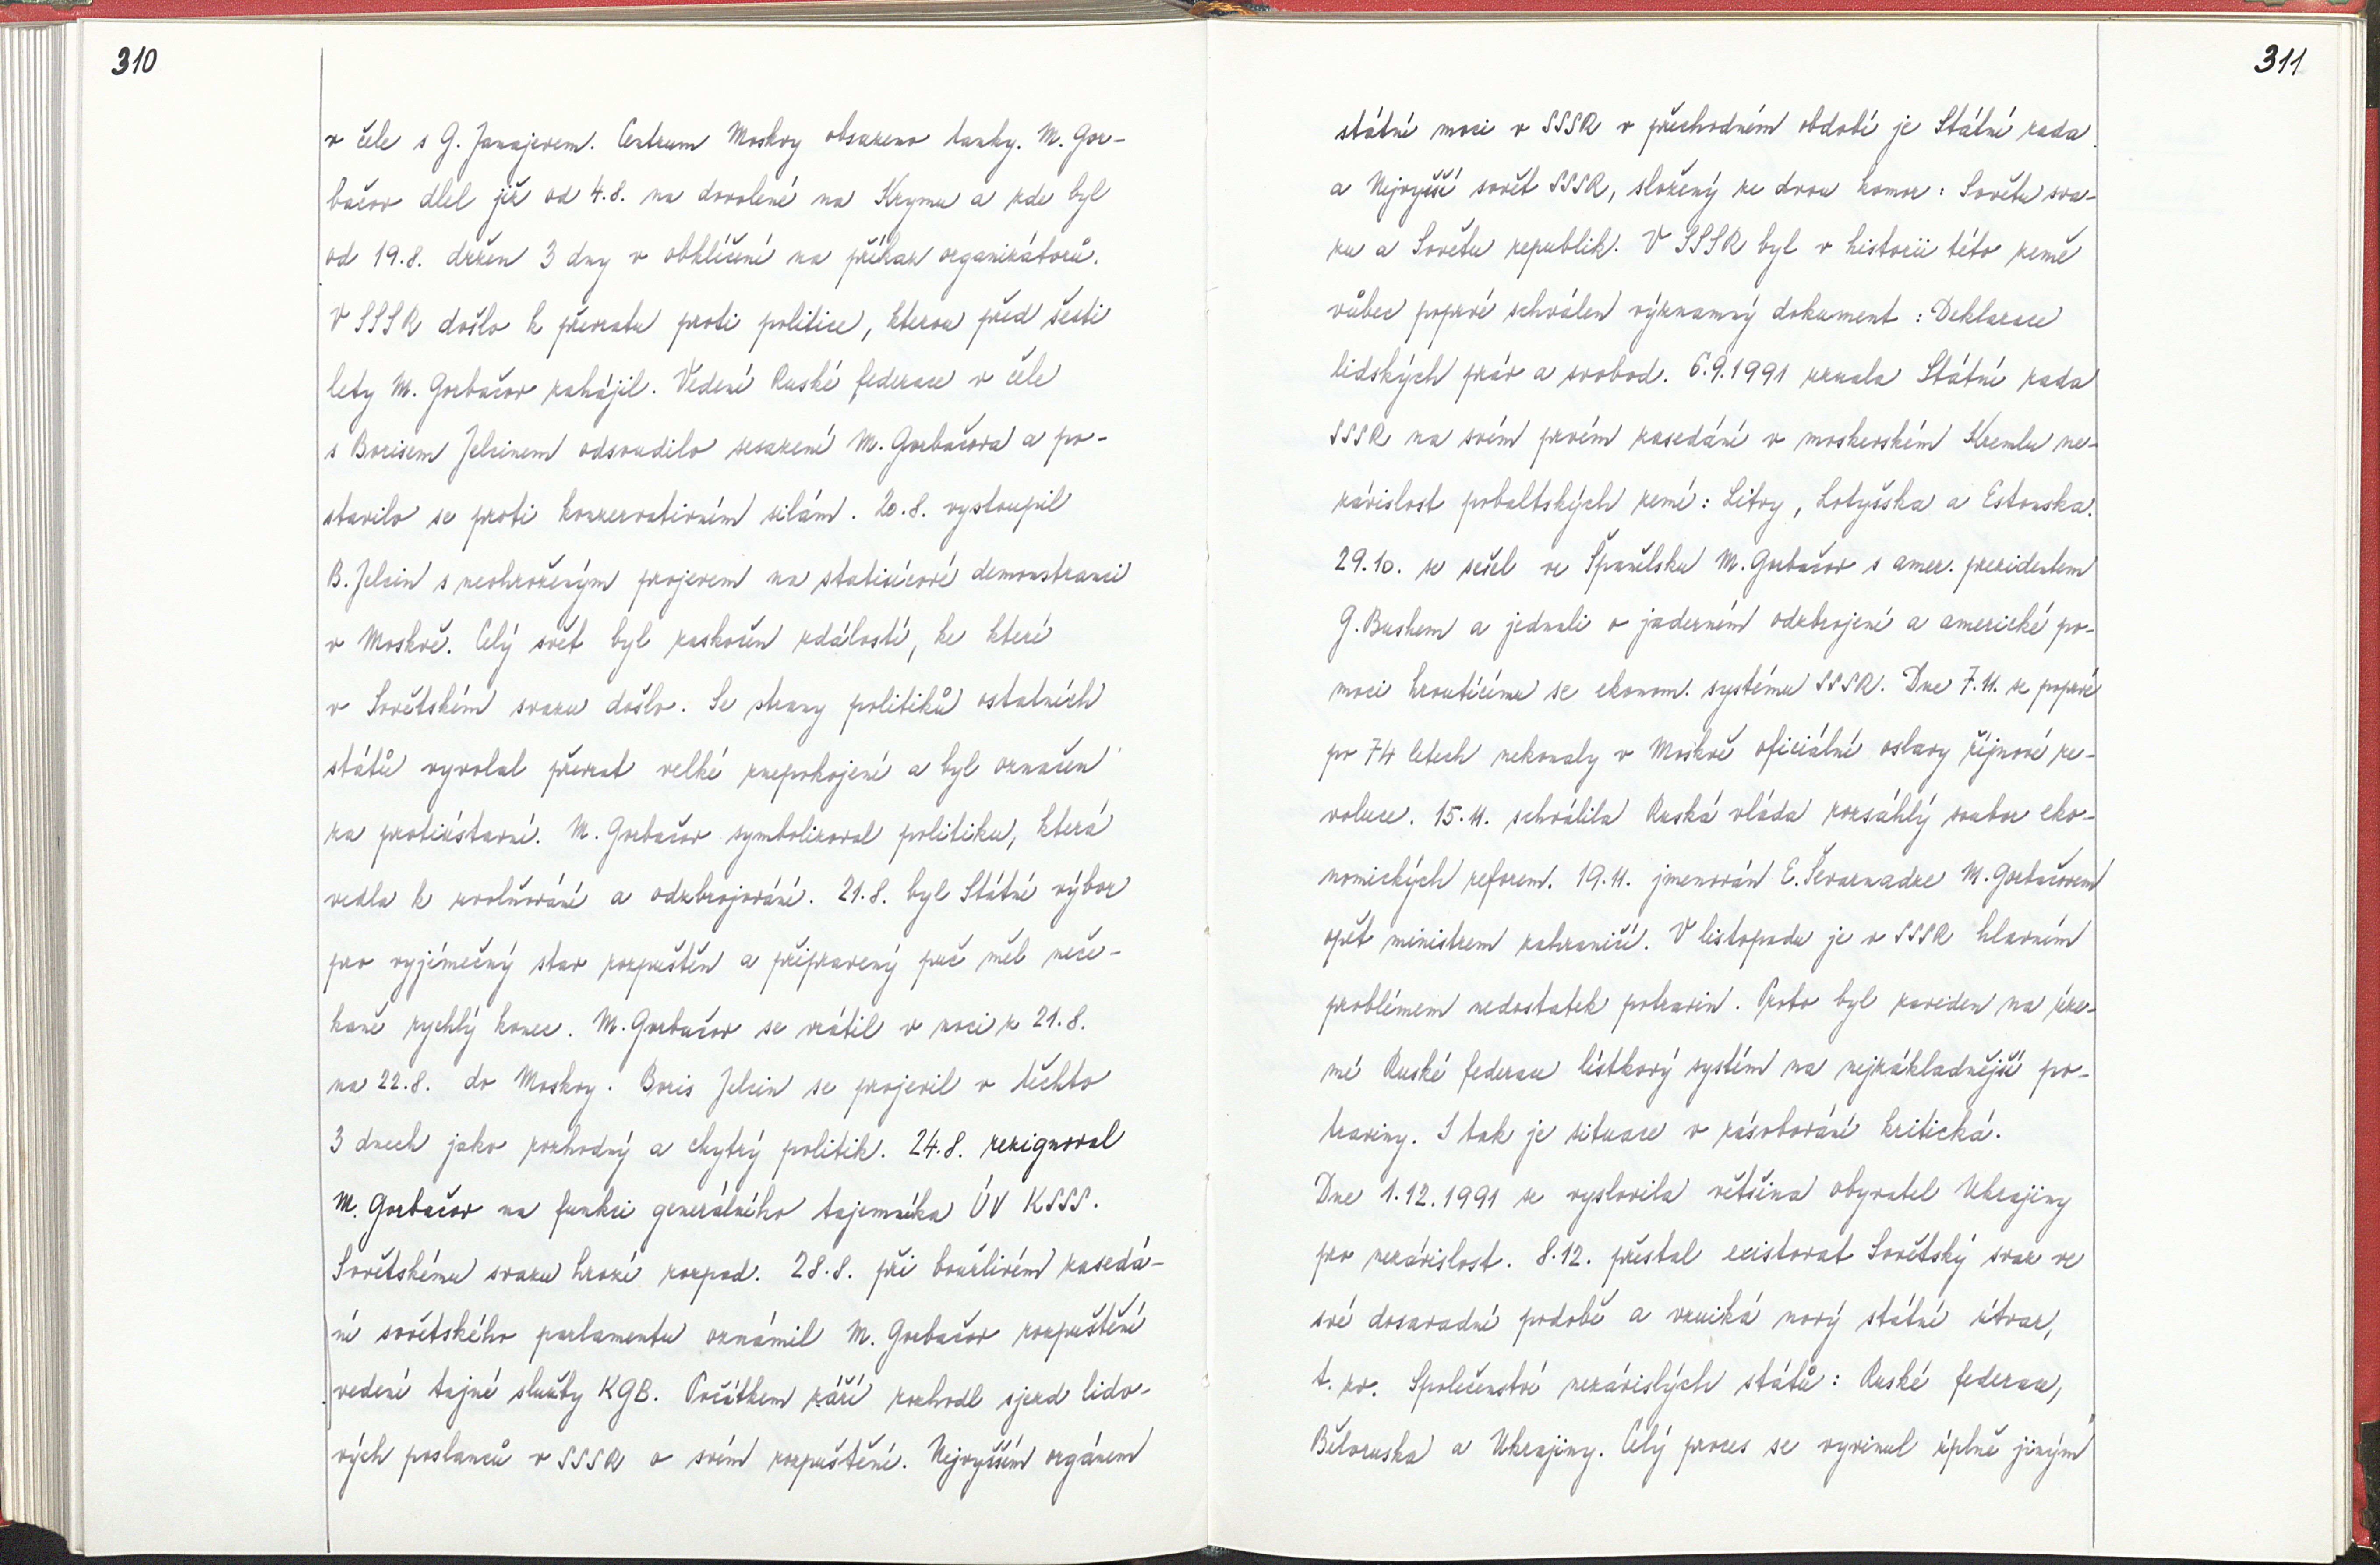 310
v čele s G. Janajevem. Centrum Moskvy obsazeno tanky. M. Gor-
bačov dlel již od 4.8. na dovolené na Krymu a zde byl
od 19.8. držen 3 dny v obklíčení na příkaz organizátorů.
V SSSR došlo k převratu proti politice, kterou před šesti
lety M. Gorbačov zahájil. Vedení Ruské federace v čele
s Borisem Jelcinem odsoudilo sesazení M. Gorbačova a po-
stavilo se proti konzervativním silám. 20.8. vystoupil
B. Jelcin s neohroženým projevem na statisícové demonstraci
v Moskvě. Celý svět byl zaskočen událostí, ke které
v Sovětském svazu došlo. Se strany politiků ostatních
států vyvolal převrat velké znepokojení a byl označen
za protiústavní. M. Gorbačov symbolizoval politiku, která
vedla k uvolňování a odzbrojování. 21.8. byl Státní výbor
pro vyjímečný stav rozpuštěn a připravený puč měl neče-
kaně rychlý konec. M. Gorbačov se vrátil v noci z 21.8.
na 22.8. do Moskvy. Boris Jelcin se projevil v těchto
3 dnech jako rozhodný a chytrý politik. 24.8. rezignoval
M. Gorbačov na funkci generálního tajemníka ÚV KSSS.
Sovětskému svazu hrozí rozpad. 28.8. při bouřlivém zasedá-
ní sovětského parlamentu oznámil M. Gorbačov rozpuštění
vedení tajné služby KGB. Počátkem září rozhodl sjezd lido-
vých poslanců v SSSR o svém rozpuštění. Nejvyšším orgánem
311
státní moci v SSSR v přechodném období je Státní rada
a Nejvyšší sovět SSSR, složený ze dvou komor: Sovětu sva-
zu a Sovětu republik. V SSSR byl v historii této země
vůbec poprvé schválen významný dokument: Deklarace
lidských práv a svobod. 6.9.1991 uznala Státní rada
SSSR na svém prvém zasedání v moskevském Kremlu ne-
závislost pobaltských zemí: Litvy, Lotyšska a Estonska.
29.10. se sešel ve Španělsku M. Gorbačov s amer. prezidentem
G. Bushem a jednali o jaderném odzbrojení a americké po-
moci hroutícímu se ekonom. systému SSSR. Dne 7.11. se poprvé
po 74 letech nekonaly v Moskvě oficiální oslavy říjnové re-
voluce. 15.11. schválila Ruská vláda rozsáhlý soubor eko-
nomických reforem. 19.11. jmenován E. Ševarnadze M. Gorbačovem
opět ministrem zahraničí. V listopadu je v SSSR hlavním
problémem nedostatek potravin. Proto byl zaveden na úze-
mí Ruské federace lístkový systém na nejzákladnější po-
traviny. I tak je situace v zásobování kritická.
Dne 1.12.1991 se vyslovila většina obyvatel Ukrajiny
pro nezávislost. 8.12. přestal existovat Sovětský svaz ve
své dosavadní podobě a vzniká nový státní útvar,
t. zv. Společenství nezávislých států: Ruské federace,
Běloruska a Ukrajiny. Celý proces se vyvinul úplně jiným